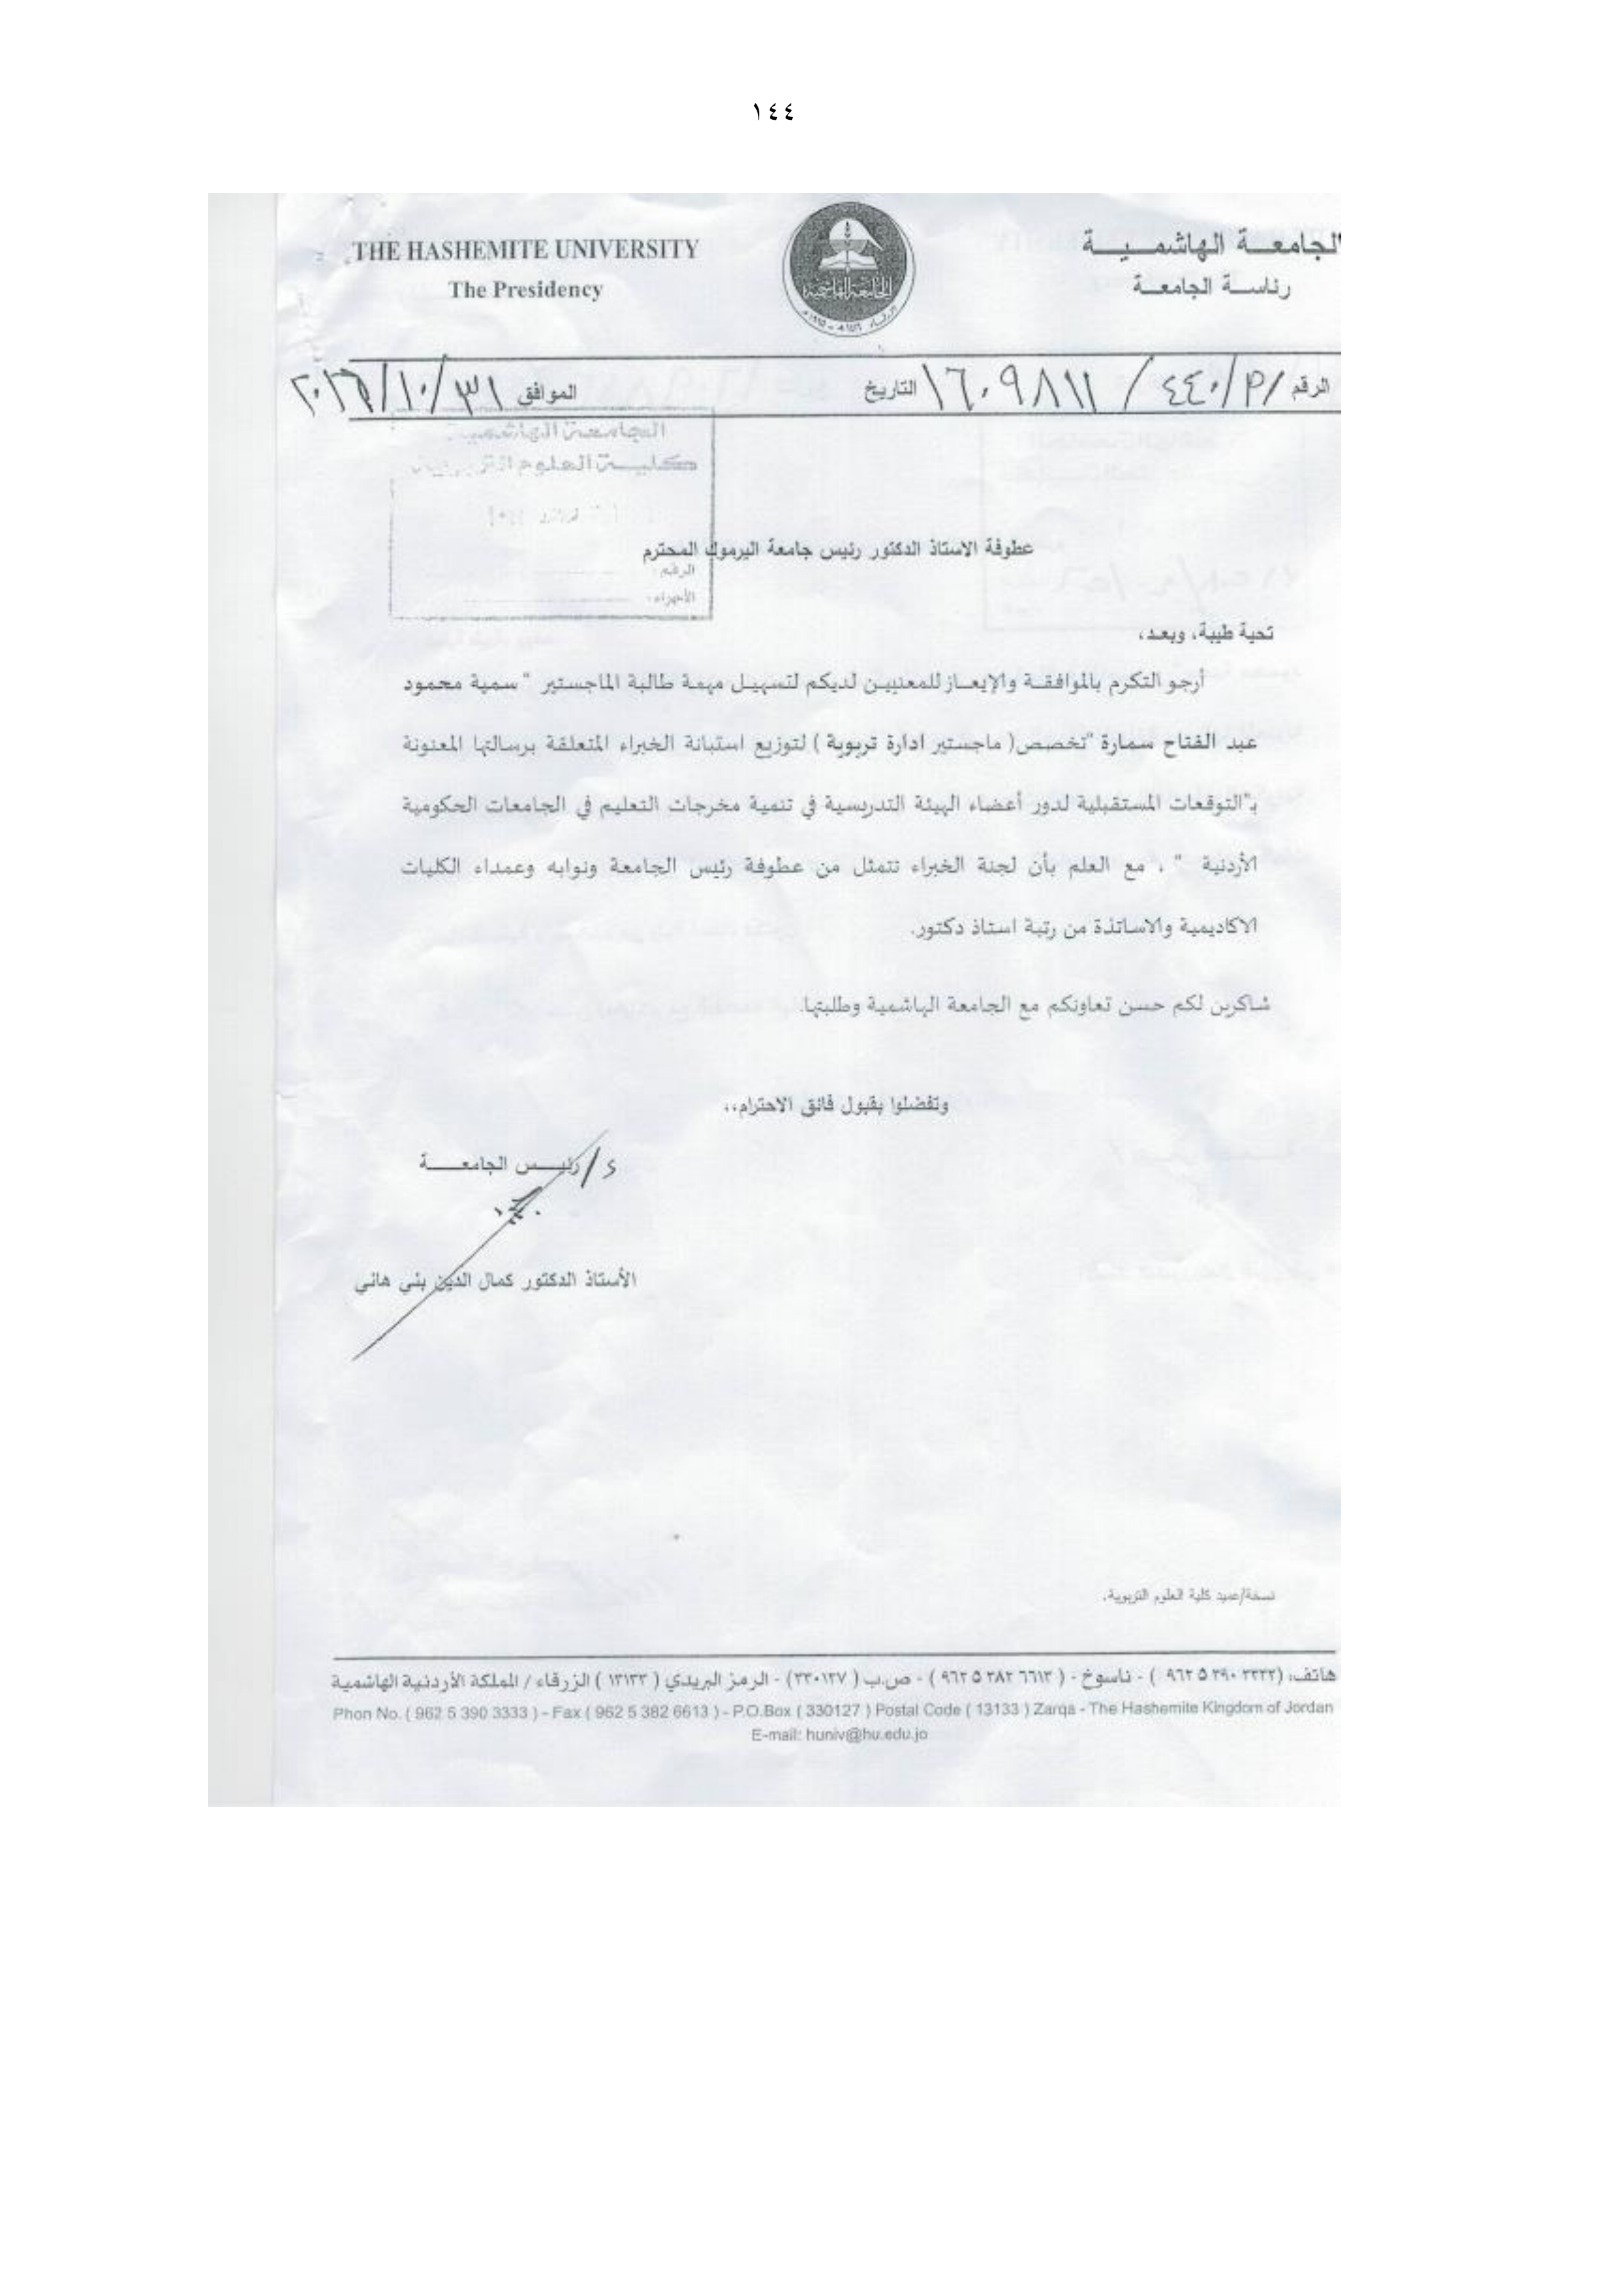 ١٤٤
THE HASHEMITE UNIVERSITY
The Presidency
الجامعة الهاشمية
رئاسة الجامعة
الجامعة الهاشمية
الرقم /م/٤٤٠ / ١٦٠٩٨١١ التاريخ الموافق ٢٠١٦/١٠/٣١
الجامعة الهاشمية
كلية العلوم التربوية
الرقم:
عطوفة الاستاذ الدكتور رئيس جامعة اليرموك المحترم
تحية طيبة، وبعد،
أرجو التكرم بالموافقة والإيعاز للمعنيين لديكم لتسهيل مهمة طالبة الماجستير " سمية محمود
عبد الفتاح سمارة "تخصص( ماجستير ادارة تربوية ) لتوزيع استبانة الخبراء المتعلقة برسالتها المعنونة
بـ"التوقعات المستقبلية لدور أعضاء الهيئة التدريسية في تنمية مخرجات التعليم في الجامعات الحكومية
الأردنية " ، مع العلم بأن لجنة الخبراء تتمثل من عطوفة رئيس الجامعة ونوابه وعمداء الكليات
الاكاديمية والاساتذة من رتبة استاذ دكتور.
شاكرين لكم حسن تعاونكم مع الجامعة الهاشمية وطلبتها.
وتفضلوا بقبول فائق الاحترام،،
د/ رئيس الجامعة
الأستاذ الدكتور كمال الدين بني هاني
نسخة/عميد كلية العلوم التربوية.
هاتف: (٣٣٣٣ ٣٩٠ ٥ ٩٦٢ ) - ناسوخ - ( ٦٦١٣ ٣٨٢ ٥ ٩٦٢ ) - ص.ب ( ٣٣٠١٢٧) - الرمز البريدي ( ١٣١٣٣ ) الزرقاء / المملكة الأردنية الهاشمية
Phon No. ( 962 5 390 3333 ) – Fax ( 962 5 382 6613 ) – P.O.Box ( 330127 ) Postal Code ( 13133 ) Zarqa - The Hashemite Kingdom of Jordan
E-mail: huniv@hu.edu.jo